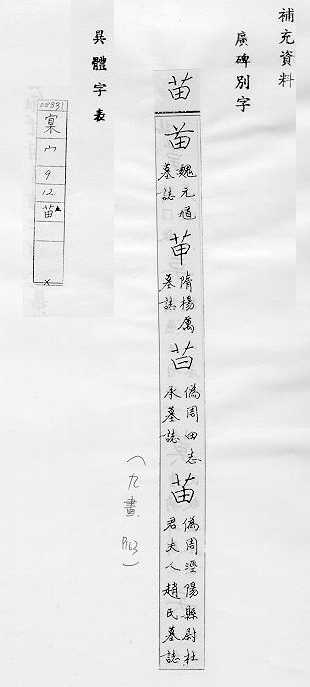 補充資料
廣碑別字
苗
苗
魏元道
墓誌
苗
隋楊厲
墓誌
苗
偽周田志
承墓誌
苗
偽周溼陽縣尉杜
君夫人趙氏墓誌
(九畫 P163)
異體字表
宀
9
12
苗
x